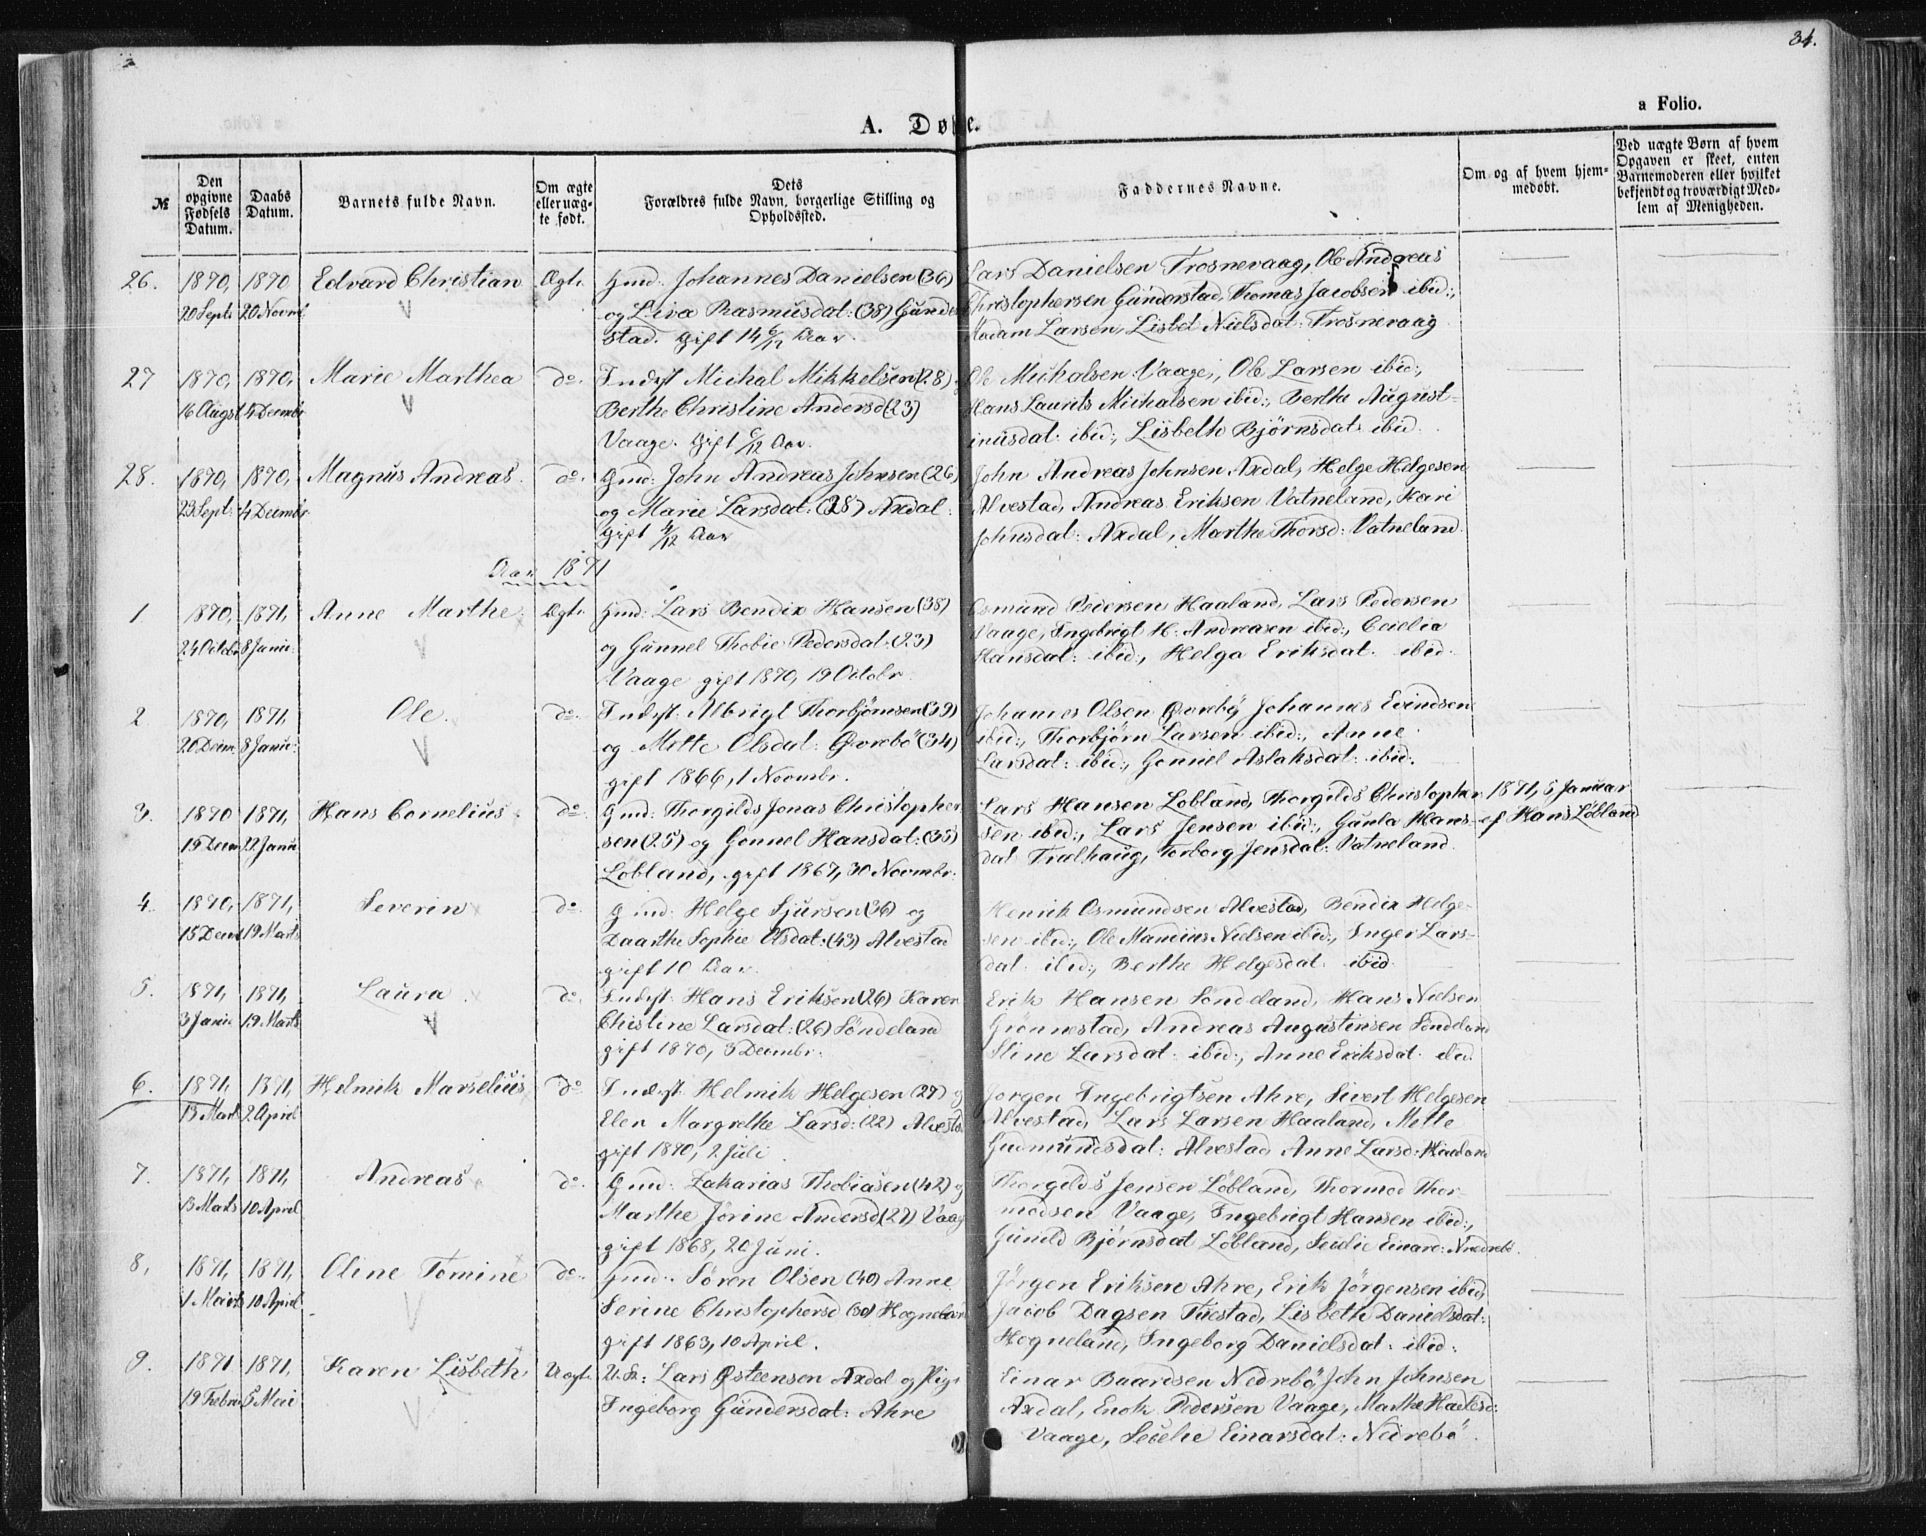 34.
a Folio.
A. Døbte.
№
Den opgivne Fødsels Datum.
Daabs Datum.
Barnets fulde Navn.
Om ægte eller uæg-te født.
Dets Forældres fulde Navn, borgerlige Stilling og Opholdsted.
Faddernes Navne.
Om og af hvem hjem-medøbt.
Ved uægte Børn af hvem Opgaven er skeet, enten Barnemoderen eller hvilket bekjendt og troværdigt Med-lem af Menigheden.
26. 1870, 1870 Edvard Christian Ægte Gmd. Johannes Danielsen (36) Lars Danielsen Trosnevaag, Ole Andreas
20 Septr 20 Novmr og Liva Rasmusdat: (38) Gunder Christophersen Gunderstad, Thomas Jacobsen ibid:,
stad. gift 14 6/12 Aar. Madam Larsen, Lisbet Nielsdat: Trosnevaag
27 1870, 1870, Marie Marthea do. Inderst Michal Mikkelsen (28) Ole Michalsen Vaage, Ole Larsen ibid:,
16 Augst 4 Decembr Berthe Christine Andersd (23) Hans Laurits Michalsen ibid:, Berthe August-
Vaage. gift 6/12 Aar. inusdat: ibid:, Lisbeth Bjørnsdat: ibid.
28. 1870, 1870, Magnus Andreas. do. Gmd: John Andreas Johnsen (26) John Andreas Johnsen Axdal, Helge Helgesen
23 Sept: 4 Decembr og Marie Larsdat: (28) Axdal. Alvestad, Andreas Eriksen Vatneland, Kari
gift 4/12 Aar Johnsdat: Axdal, Marthe Thorsd: Vatneland.
Aar 1871
1 1870, 1871, Anne Marthe Ægte Gmd: Lars Bendix Hansen (38) Osmund Pedersen Haaland, Lars Pedersen
24 Octobr 8 Janu: og Gunnel Thobie Pedersdat: (23) Vaage, Ingebrigt H. Andreasen ibid:, Cecilia
Vaage gift 1870, 19 Octobr. Hansdat: ibid:, Helga Eriksdat: ibid.
2 1870, 1871, Ole. do. Inderst: Albrigt Thorbjørnsen (39) Johannes Olsen Qvrebø, Johannes Evindsen
20 Decm. 8 Janu: og Mette Olsdat: Qvrebö (34) ibid:, Thorbjørn Larsen ibid:, Anne
gift 1866, 1 Novmbr. Larsdat: ibid:, Gonnel Aslaksdat: ibid.
3. 1870 1871, Hans Cornelius do. Gmd: Thorgilds Jonas Christopher Lars Hansen Løbland, Thorgilds Christopher 1871, 5 Januar
15 Decm 22 Janu: sen (25) og Gonnel Hansdat: (35) sen ibid:, Lars Jensen ibid:, Gunla Hans- af Hans Løbland
Løbland, gift 1867, 30 Novmbr. dat Tralhaug, Torborg Jensdat: Vatneland.
4. 1870, 1871, Severin do. Gmd: Helge Sjursen (36) og Henrik Osmundsen Alvestad, Bendix Helge-
15 Decm 19 Marts Daarthe Sophie Olsdat: (43) Alvestad sen ibid:, Ole Mandius Nielsen ibid:, Inger Lars-
gift 10 Aar. dat: ibid:, Berthe Helgesdat: ibid.
5. 1871, 1871, Laura. do. Inderst: Hans Eriksen (26) Karen Erik Hansen Søndeland, Hans Nielsen
3 Janu. 19 Marts Christine Larsdat: (26) Søndeland Grønnestad, Andreas Augustinsen Søndeland
gift 1870, 3 Decmbr. Stine Larsdat: ibid:, Anne Eriksdat: ibid.
6. 1871, 1871, Helmik Marselius do Inderst: Helmik Helgesen (27) og Jørgen Ingebrigtsen Ahre, Sivert Helgesen
13 Mart 2 April Elen Margrethe Larsd: (22) Alvestad Alvestad, Lars Larsen Haaland, Mette
gift 1870, 2 Juli. Gudmundsdat: Alvestad Anne Larsd: Haaland
7. 1871, 1871, Andreas do. Gmd: Zakarias Thobiasen (42) og Thorgilds Jensen Løbland, Thormod Thor-
13 Marts 10 April Marthe Jørine Andersd (27) Vaage modsen Vaage, Ingebrigt Hansen ibid:,
gift 1868, 20 Juni. Gunild Bjørnsdat Løbland, Secilie Einard: Nedrebø.
8. 1871, 1871, Oline Tomine do. Gmd: Søren Olsen (40) Anne Jørgen Eriksen Ahre, Erik Jørgensen ibid,
1 Marts 10 April Serine Christophersd (30) Hogneland Jacob Dagsen Tuestad, Lisbeth Danielsdat:
gift 1863, 10 April. Hogneland, Ingeborg Danielsdat: ibid.
9. 1871 1871, Karen Lisbeth Uægt. U.K: Lars Østeensen Axdal og Pige Einar Baardsen Nedrebø, John Johnsen
19 Febru 5 Mai Ingeborg Gundersdat: Ahre Axdal, Enok Pedersen Vaage, Marthe
Vaage, Secelie Einarsdat: Nedrebö.